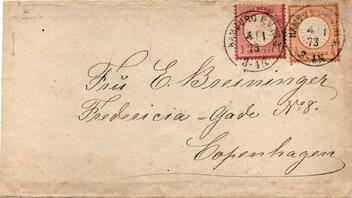 HAMBURG
4/1
73
HAMBURG
4/1
73
Frü E. Breininger
Fredericia-Gade No 8.
Copenhagen